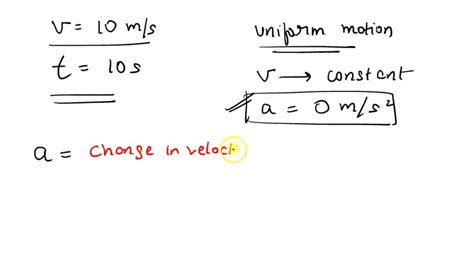 v = 10 m/s
t = 10s
uniform motion
v → constant
a = 0 m/s²
a = change in veloci